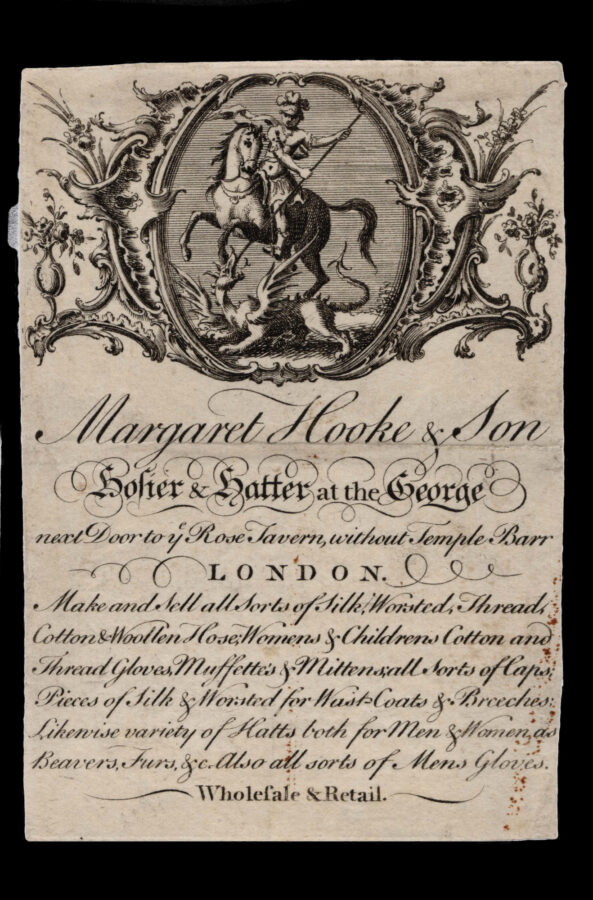 Margaret Hooke & Son
Hosier & Hatter at the George
next Door to yᵉ Rose Tavern, without Temple Barr
LONDON.
Make and Sell all Sorts of Silk, Worsted, Thread,
Cotton & Woollen Hose; Womens & Childrens Cotton and
Thread Gloves, Muffettes & Mittens; all Sorts of Caps;
Pieces of Silk & Worsted for Wast-Coats & Breeches:
Likewise variety of Hatts both for Men & Women, as
Beavers, Furs, &c. Also all sorts of Mens Gloves.
Wholeſale & Retail.